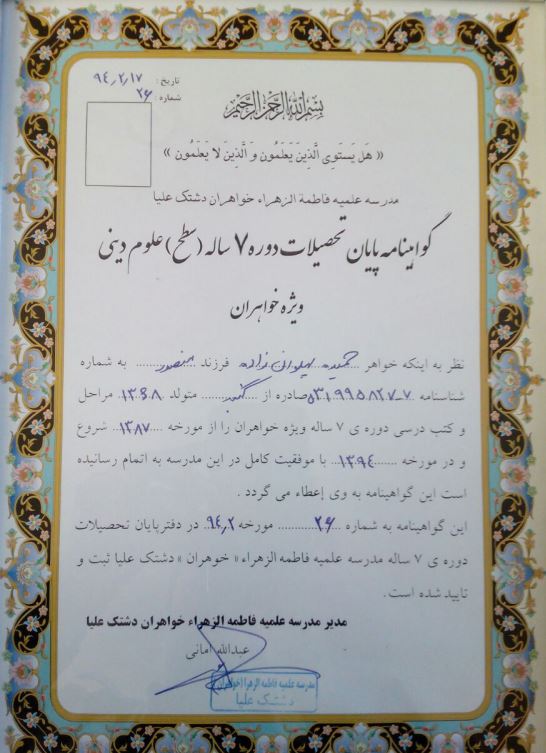 تاریخ : ۹۴٫۲٫۱۷
شماره : ۲۶
بسم الله الرحمن الرحیم
« هَل یَستَوِی الَّذینَ یَعلَمُون وَ الَّذینَ لا یَعلَمُون »
مدرسه علمیه فاطمة الزهراء خواهران دشتک علیا
گواهینامه پایان تحصیلات دوره ۷ ساله (سطح) علوم دینی
ویژه خواهران
نظر به اینکه خواهر حمیده پهلوانی زاده فرزند منصور به شماره
شناسنامه صادره از متولد ۱۳۶۸ مراحل
و کتب درسی دوره ی ۷ ساله ویژه خواهران را از مورخه ۱۳۸۷ شروع
و در مورخه ۱۳۹۴ با موفقیت کامل در این مدرسه به اتمام رسانیده
است این گواهینامه به وی إعطاء می گردد .
این گواهینامه به شماره ۲۶ مورخه ۹۴٫۲ در دفترپایان تحصیلات
دوره ی ۷ ساله مدرسه علمیه فاطمه الزهراء« خوهران »دشتک علیا ثبت و
تایید شده است .
مدیر مدرسه علمیه فاطمه الزهراء خواهران دشتک علیا
عبدالله امانی
مدرسه علمیه فاطمه الزهرا (خواهران)
دشتک علیا